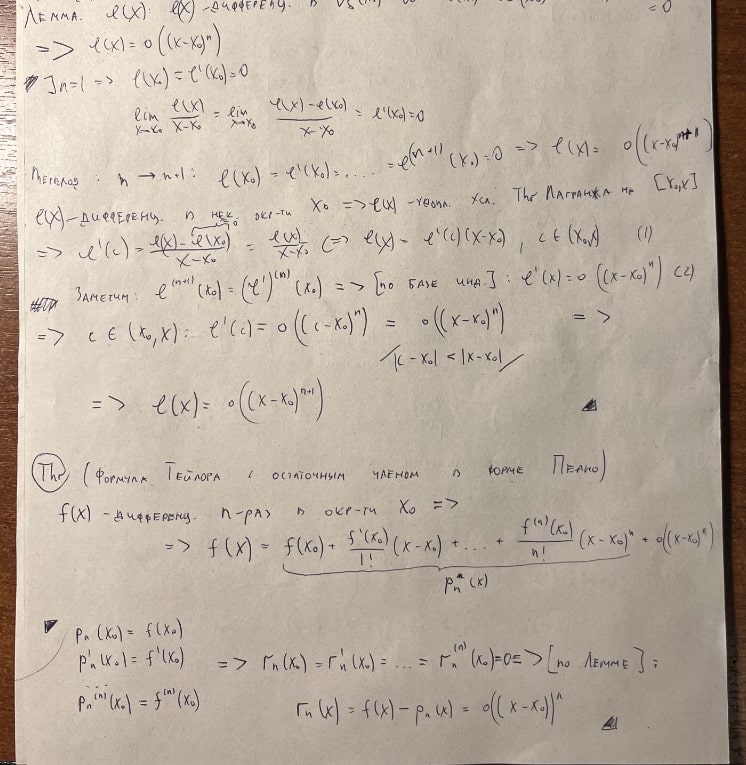 Лемма. φ(x): φ(x) - дифференц. в
= 0
=> φ(x) = o((x-x₀)ⁿ)
▼ ] n=1 => φ(x₀) = φ'(x₀) = 0
lim x→x₀ φ(x)/(x-x₀) = lim x→x₀ (φ(x)-φ(x₀))/(x-x₀) = φ'(x₀) = 0
n → n+1: φ(x₀) = φ'(x₀) = ..... = φ⁽ⁿ⁺¹⁾(x₀) = 0 => φ(x) = o((x-x₀)ⁿ⁺¹)
φ(x) - дифференц. в нек. окр-ти x₀ => φ(x) - удовл. усл. Thr Лагранжа на [x₀,x]
=> φ'(c) = (φ(x) - φ(x₀))/(x-x₀) = φ(x)/(x-x₀) <=> φ(x) = φ'(c)(x-x₀), c ∈ (x₀,x) (1)
0
Заметим: φ⁽ⁿ⁺¹⁾(x₀) = (φ')⁽ⁿ⁾(x₀) => [по базе инд.]: φ'(x) = o((x-x₀)ⁿ) (2)
=> c ∈ (x₀,x): φ'(c) = o((c-x₀)ⁿ) = o((x-x₀)ⁿ) =>
/|c-x₀| < |x-x₀|/
=> φ(x) = o((x-x₀)ⁿ⁺¹)
Thr (Формула Тейлора с остаточным членом в форме Пеано)
f(x) - дифференц. n-раз в окр-ти x₀ =>
=> f(x) = f(x₀) + f'(x₀)/1! (x-x₀) + ... + f⁽ⁿ⁾(x₀)/n! (x-x₀)ⁿ + o((x-x₀)ⁿ)
pₙ(x)
▼ pₙ(x₀) = f(x₀)
p'ₙ(x₀) = f'(x₀) => rₙ(x₀) = r'ₙ(x₀) = ... = rₙ⁽ⁿ⁾(x₀) = 0 => [по Лемме]:
.....
pₙ⁽ⁿ⁾(x₀) = f⁽ⁿ⁾(x₀) rₙ(x) = f(x) - pₙ(x) = o((x-x₀))ⁿ